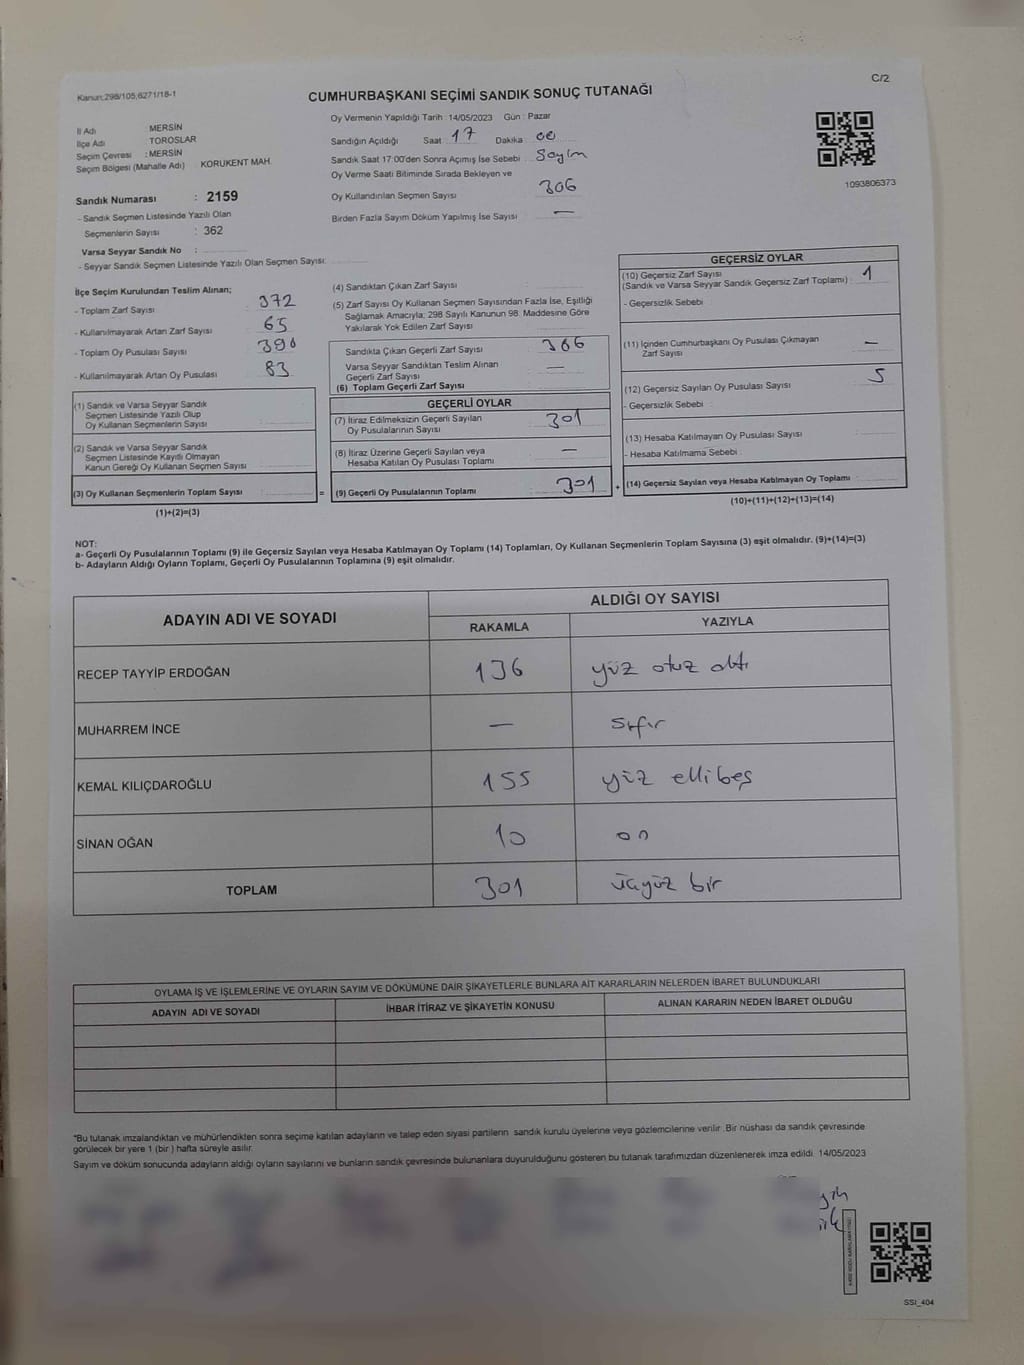 Kanun;298/105;6271/18-1
C/2
CUMHURBAŞKANI SEÇİMİ SANDIK SONUÇ TUTANAĞI
İl Adı MERSİN
İlçe Adı TOROSLAR
Seçim Çevresi : MERSİN
Seçim Bölgesi (Mahalle Adı) KORUKENT MAH.
Sandık Numarası : 2159
- Sandık Seçmen Listesinde Yazılı Olan
Seçmenlerin Sayısı : 362
Varsa Seyyar Sandık No :
- Seyyar Sandık Seçmen Listesinde Yazılı Olan Seçmen Sayısı:
Oy Vermenin Yapıldığı Tarih : 14/05/2023 Gün : Pazar
Sandığın Açıldığı Saat 17 Dakika 00
Sandık Saat 17:00'den Sonra Açımış İse Sebebi Sayım
Oy Verme Saati Bitiminde Sırada Bekleyen ve
Oy Kullandırılan Seçmen Sayısı 306
Birden Fazla Sayım Döküm Yapılmış İse Sayısı —
1093806373
İlçe Seçim Kurulundan Teslim Alınan;
- Toplam Zarf Sayısı 372
- Kullanılmayarak Artan Zarf Sayısı 65
- Toplam Oy Pusulası Sayısı 390
- Kullanılmayarak Artan Oy Pusulası 83
(1) Sandık ve Varsa Seyyar Sandık
Seçmen Listesinde Yazılı Olup
Oy Kullanan Seçmenlerin Sayısı
(2) Sandık ve Varsa Seyyar Sandık
Seçmen Listesinde Kayıtlı Olmayan
Kanun Gereği Oy Kullanan Seçmen Sayısı
(3) Oy Kullanan Seçmenlerin Toplam Sayısı
(1)+(2)=(3)
=
(4) Sandıktan Çıkan Zarf Sayısı
(5) Zarf Sayısı Oy Kullanan Seçmen Sayısından Fazla İse, Eşitliği
Sağlamak Amacıyla; 298 Sayılı Kanunun 98. Maddesine Göre
Yakılarak Yok Edilen Zarf Sayısı
Sandıkta Çıkan Geçerli Zarf Sayısı 306
Varsa Seyyar Sandıktan Teslim Alınan
Geçerli Zarf Sayısı —
(6) Toplam Geçerli Zarf Sayısı
GEÇERLİ OYLAR
(7) İtiraz Edilmeksizin Geçerli Sayılan
Oy Pusulalarının Sayısı 301
(8) İtiraz Üzerine Geçerli Sayılan veya
Hesaba Katılan Oy Pusulası Toplamı —
(9) Geçerli Oy Pusulalarının Toplamı 301
+
GEÇERSİZ OYLAR
(10) Geçersiz Zarf Sayısı
(Sandık ve Varsa Seyyar Sandık Geçersiz Zarf Toplamı) : 1
- Geçersizlik Sebebi
(11) İçinden Cumhurbaşkanı Oy Pusulası Çıkmayan
Zarf Sayısı —
(12) Geçersiz Sayılan Oy Pusulası Sayısı 5
- Geçersizlik Sebebi :
(13) Hesaba Katılmayan Oy Pusulası Sayısı
- Hesaba Katılmama Sebebi
(14) Geçersiz Sayılan veya Hesaba Katılmayan Oy Toplamı :
(10)+(11)+(12)+(13)=(14)
NOT:
a- Geçerli Oy Pusulalarının Toplamı (9) ile Geçersiz Sayılan veya Hesaba Katılmayan Oy Toplamı (14) Toplamları, Oy Kullanan Seçmenlerin Toplam Sayısına (3) eşit olmalıdır. (9)+(14)=(3)
b- Adayların Aldığı Oyların Toplamı, Geçerli Oy Pusulalarının Toplamına (9) eşit olmalıdır.
ADAYIN ADI VE SOYADI ALDIĞI OY SAYISI
RAKAMLA YAZIYLA
RECEP TAYYİP ERDOĞAN 136 yüz otuz altı
MUHARREM İNCE — sıfır
KEMAL KILIÇDAROĞLU 155 yüz ellibeş
SİNAN OĞAN 10 on
TOPLAM 301 üçyüz bir
OYLAMA İŞ VE İŞLEMLERİNE VE OYLARIN SAYIM VE DÖKÜMÜNE DAİR ŞİKAYETLERLE BUNLARA AİT KARARLARIN NELERDEN İBARET BULUNDUKLARI
ADAYIN ADI VE SOYADI İHBAR İTİRAZ VE ŞİKAYETİN KONUSU ALINAN KARARIN NEDEN İBARET OLDUĞU
*Bu tutanak imzalandıktan ve mühürlendikten sonra seçime katılan adayların ve talep eden siyasi partilerin sandık kurulu üyelerine veya gözlemcilerine verilir. Bir nüshası da sandık çevresinde
görülecek bir yere 1 (bir) hafta süreyle asılır.
Sayım ve döküm sonucunda adayların aldığı oyların sayılarını ve bunların sandık çevresinde bulunanlara duyurulduğunu gösteren bu tutanak tarafımızdan düzenlenerek imza edildi. 14/05/2023
SSI_404